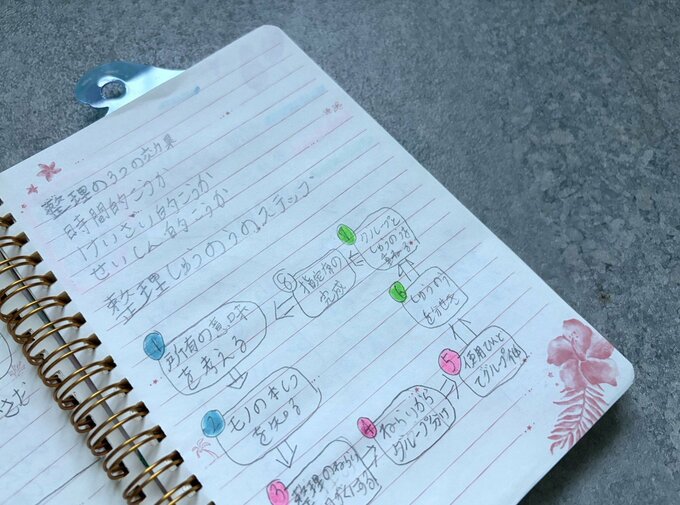 整理の3つの効果
時間的こうか
けいざい的こうか
せいしん的こうか
整理しゅうのうのステップ
1
所有の意味
を考える
2
モノの本しつ
を知る
3
整理のねらい
4
ねらいから
グループ分け
5
使用ひんど
でグループ化
6
しゅうのう
7
グループと
しゅうのう
8
指定席の
完成